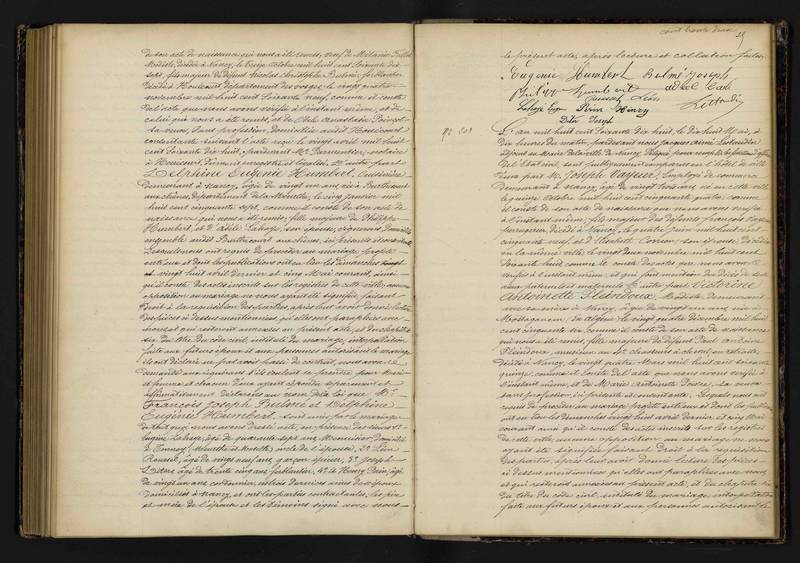 de son acte de naissance qui nous a été remis, veuf de Mélanie
Modeste, décédée à Nancy, le treize octobre mil huit cent soixante dix
sept, fils majeur de défunt Nicolas Christophe ferblantier
décédé à Houécourt, département des Vosges, le vingt quatre
novembre mil huit cent soixante neuf, comme il conste
de l'acte que nous avons vérifié à l'instant même, et de
celui qui nous a été remis, et de Anastasie
sa veuve, sans profession, domiciliée audit Houécourt
consentante suivant l'acte reçu le vingt avril mil huit
cent soixante dix huit, par devant Me notaire
à Houécourt, dûment enregistré et légalisé, d'une part
Delphine Eugénie Humbert, cuisinière
demeurant à Nancy, âgée de vingt un ans, née à Burthecourt
aux chênes, département de la Meurthe, le cinq janvier mil
huit cent cinquante sept, comme il conste de son acte de
naissance qui nous a été remis, fille majeure de
Humbert, et d'Adèle Lahaye, son épouse, vignerons, domiciliés
ensemble audit Burthecourt aux chênes, ici présents et consentants
Lesquels nous ont requis de procéder au mariage projeté
entre eux et dont les publications ont eu lieu les dimanches
vingt huit avril dernier et cinq Mai courant, ainsi
qu'il conste des actes inscrits sur les registres de cette ville, aucune
opposition au mariage ne nous ayant été signifiée, faisant
droit à la réquisition des parties, après leur avoir donné lecture
des pièces ci dessus mentionnées, qu'elles ont paraphées avec
nous et qui resteront annexées au présent acte, et du chapitre
six, du titre du code civil, intitulé du mariage, interpellation
faite aux futurs époux et aux personnes autorisant le mariage
ils ont déclaré ne pas avoir passé de contrat, nous avons
demandé aux requérants s'ils veulent se prendre pour mari
et femme et chacun d'eux ayant répondu séparément et
affirmativement déclarons au nom de la loi que Mr
François Joseph et Delphine
Eugénie Humbert, sont unis par le mariage
de tout quoi nous avons dressé acte, en présence des sieurs 1°
Eugène Lahaye, âgé de quarante sept ans, domicilié
à Tonnoy (Meurthe et Moselle) oncle de l'épouse, 2° Léon
âgé de vingt neuf ans, garçon épicier, 3° Joseph
âgé de trente cinq ans, ferblantier, 4° Henry Périn, âgé
de vingt un ans, cordonnier, les trois derniers amis des époux
domiciliés à Nancy, et ont les parties contractantes, les père
et mère de l'épouse et les témoins signé avec nous
cent trente deux
le présent acte, après lecture et collation faites.
Eugénie Humbert Joseph
Humbert
Léon
Lahaye Eug Périn Henry
Joseph
N° 263
L'an mil huit cent soixante dix huit, le dix huit Mai, à
dix heures du matin, par devant nous Jacques Aimé
adjoint au Maire de la ville de Nancy, délégué pour remplir les fonctions d'officier
de l'État civil, sont publiquement comparus en l'hôtel de ville
d'une part Mr Joseph employé de commerce
demeurant à Nancy, âgé de vingt trois ans, né en cette ville
le quinze octobre mil huit cent cinquante quatre, comme
il conste de son acte de naissance que nous avons vérifié
à l'instant même, fils majeur des défunts François
perruquier, décédé à Nancy, le quatre juin mil huit cent
cinquante neuf, et d'Élisabeth son épouse, décédée
en la même ville, le vingt deux mil huit cent
soixante huit, comme le conste des actes que nous avons
vérifiés à l'instant même, et qui font mention du décès de ses
aïeux paternels et maternels. D'autre part Victorine
Antoinette Modiste, demeurant
avec sa mère à Nancy, âgée de vingt un ans, née à
Mostaganem, en Algérie, le vingt quatre décembre mil huit
cent cinquante six, comme il conste de son acte de naissance
qui nous a été remis, fille majeure de défunt Paul Antoine
musicien au de chasseurs à cheval, en retraite,
décédé à Nancy, le vingt quatre Mars mil huit cent soixante
quinze, comme il conste de l'acte que nous avons vérifié à
l'instant même, et de Marie Antoinette sa veuve
sans profession, ici présente et consentante. Lesquels nous ont
requis de procéder au mariage projeté entre eux et dont les publications
ont eu lieu les dimanches vingt huit avril dernier et cinq Mai
courant ainsi qu'il conste des actes inscrits sur les registres
de cette ville, aucune opposition au mariage ne nous
ayant été signifiée, faisant droit à la réquisition
des parties, après leur avoir donné lecture des pièces
ci dessus mentionnées qu'elles ont paraphées avec nous
et qui resteront annexées au présent acte, et du chapitre six
du titre du code civil, intitulé du mariage, interpellation
faite aux futurs époux et aux personnes autorisant le